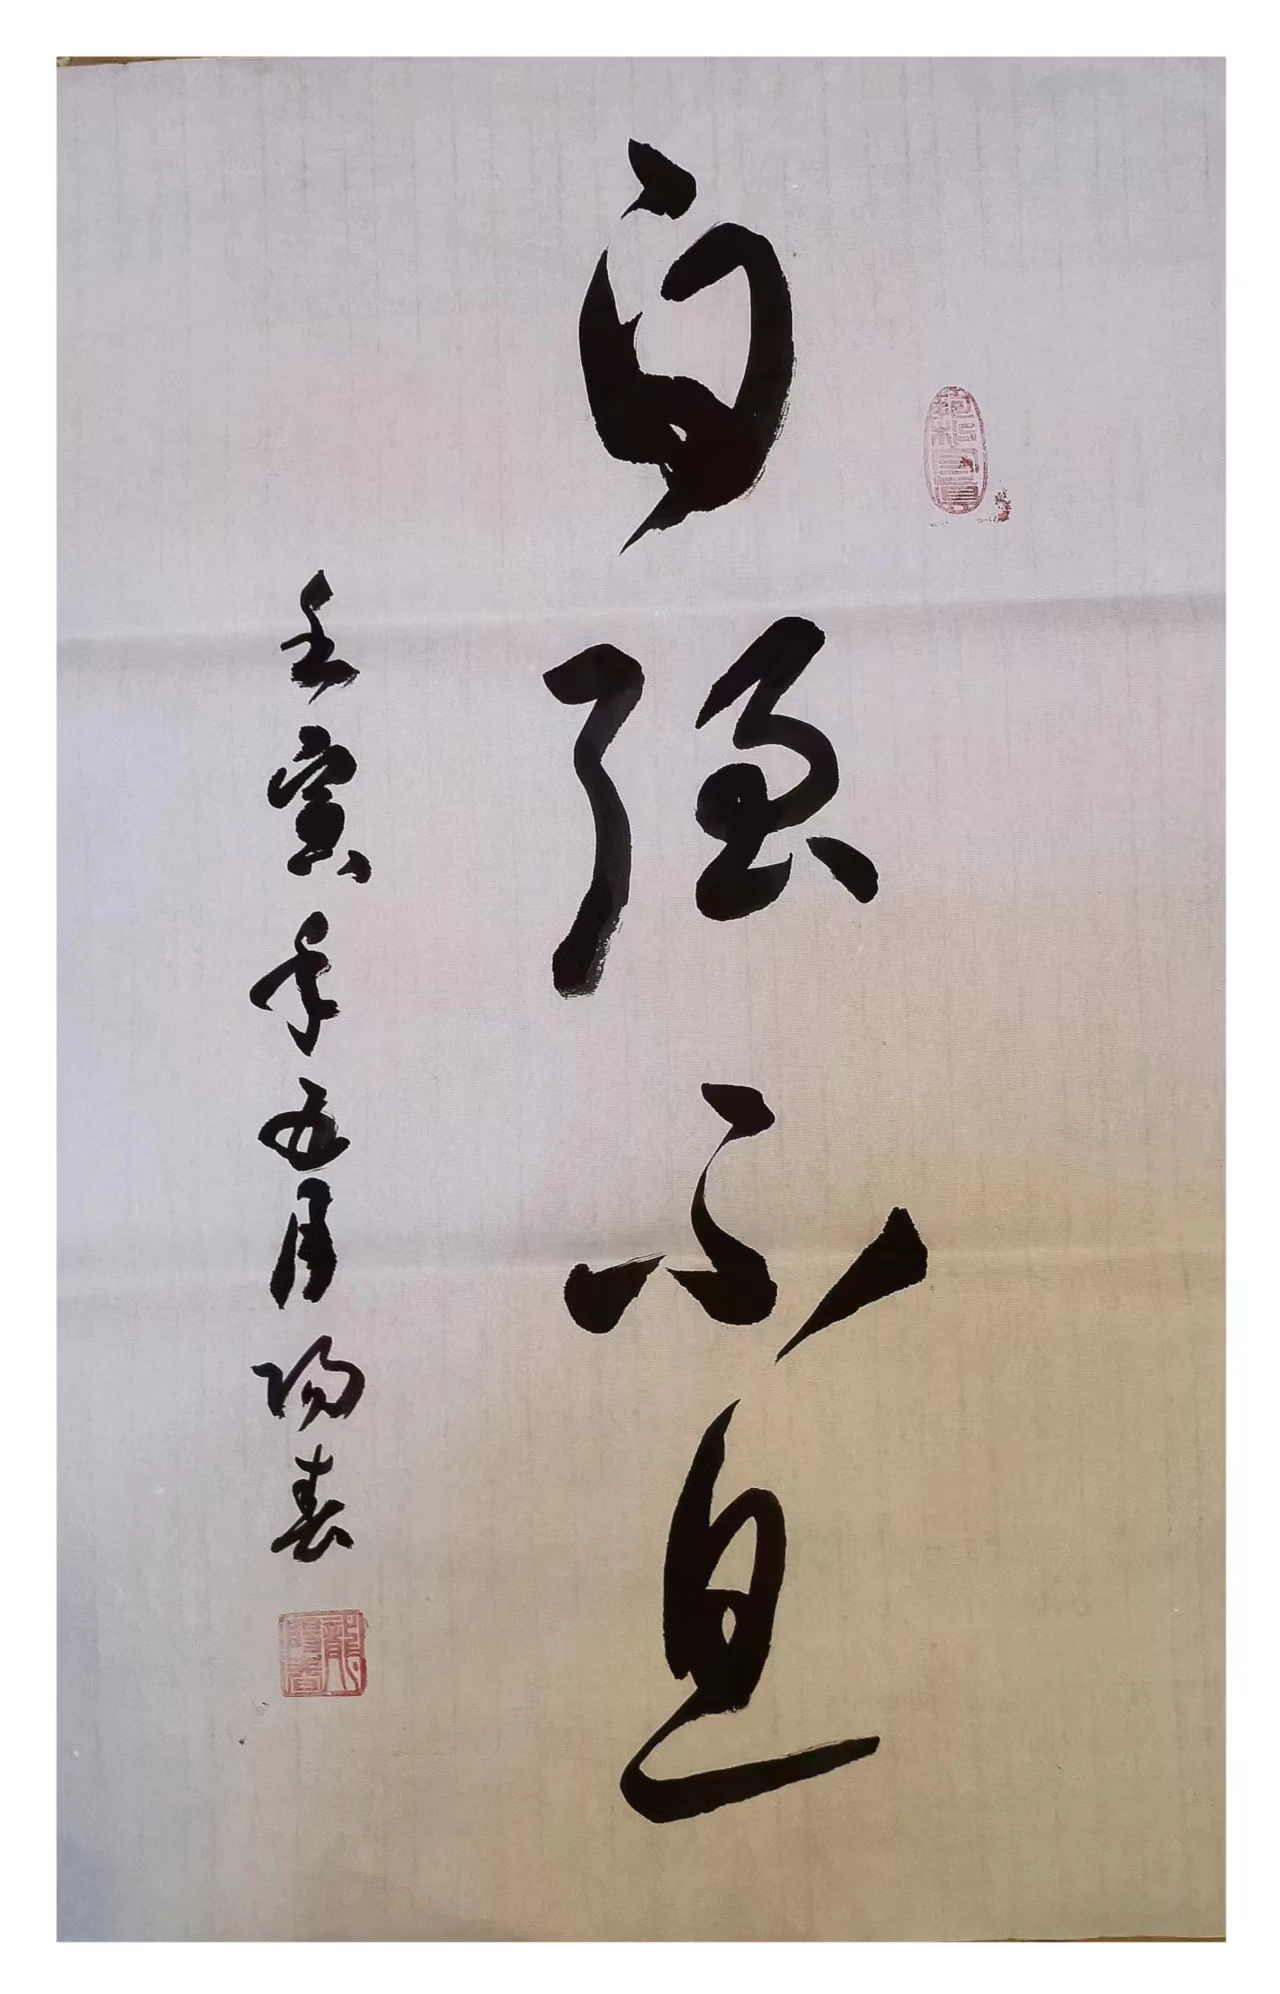 自强不息
壬寅年五月阳春